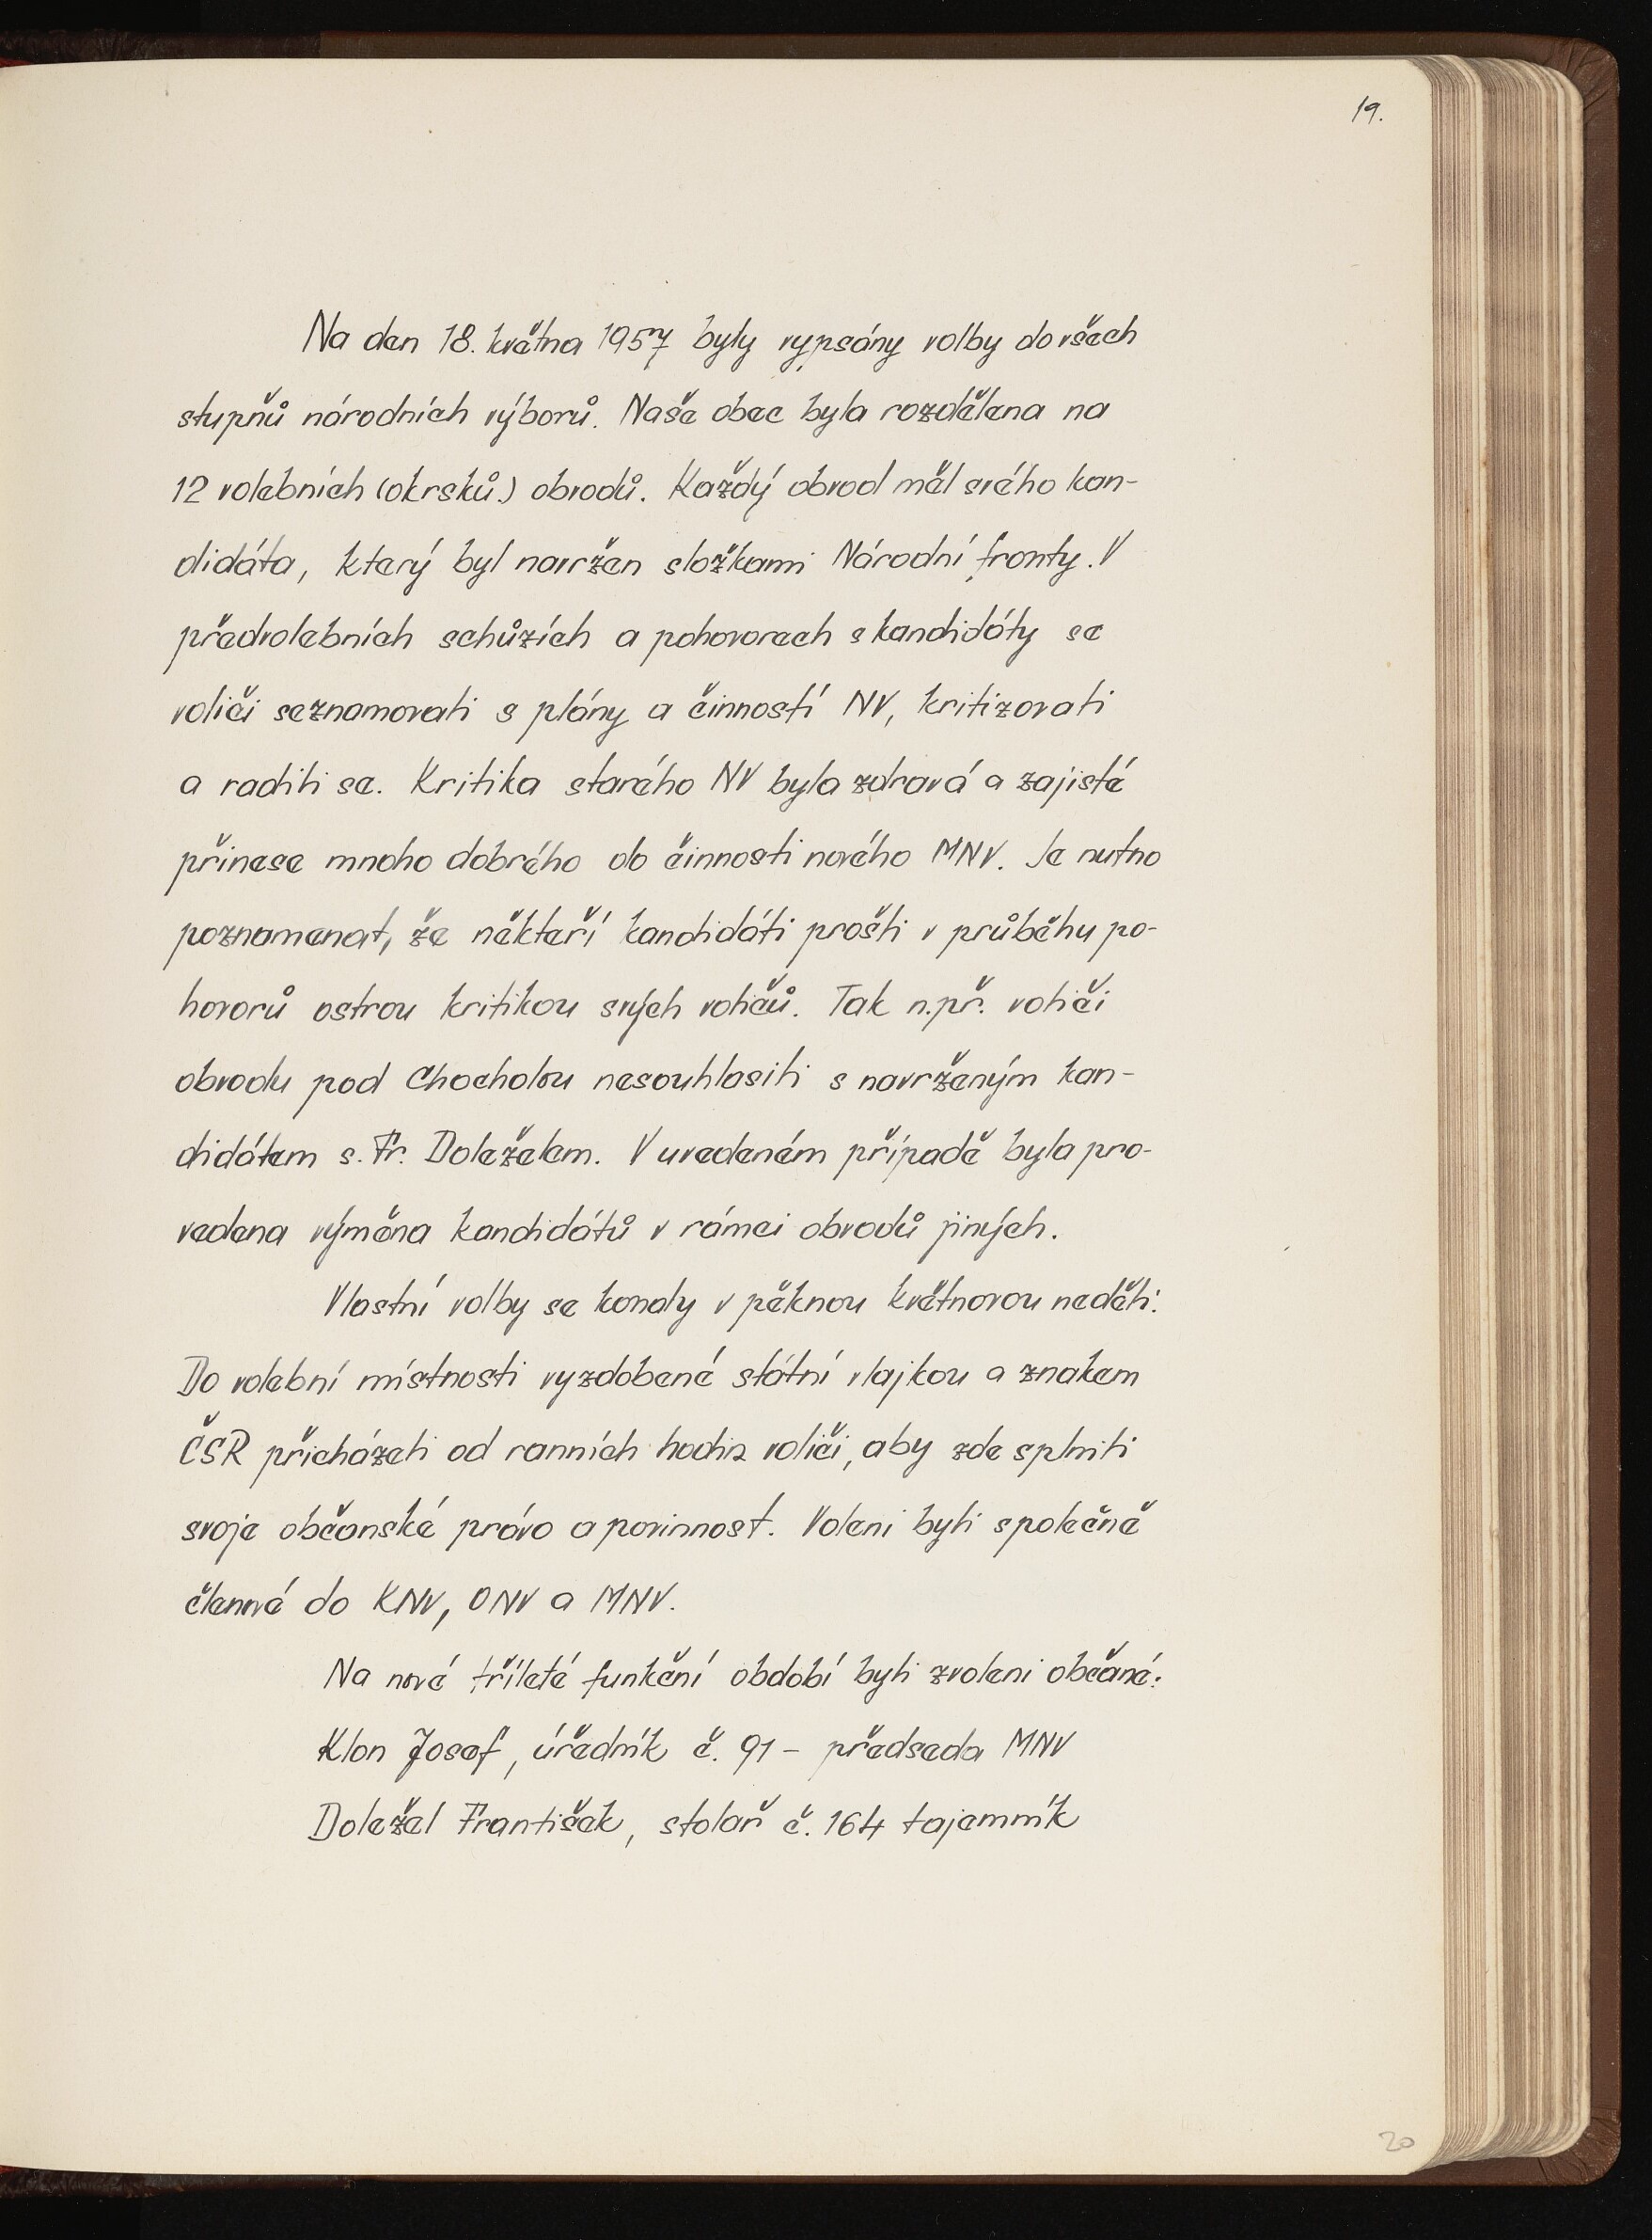 19.
Na den 18. května 1957 byly vypsány volby do všech
stupňů národních výborů. Naše obec byla rozdělena na
12 volebních (okrsků.) obvodů. Každý obvod měl svého kan-
didáta, který byl navržen složkami Národní fronty. V
předvolebních schůzích a pohovorech s kandidáty se
voliči seznamovali s plány a činností NV, kritizovali
a radili se. Kritika starého NV byla zdravá a zajisté
přinese mnoho dobrého do činnosti nového MNV. Je nutno
poznamenat, že někteří kandidáti prošli v průběhu po-
hovorů ostrou kritikou svých voličů. Tak n.př. voliči
obvodu pod Chocholou nesouhlasili s navrženým kan-
didátem s. Fr. Doleželem. V uvedeném případě byla pro-
vedena výměna kandidátů v rámci obvodů jiných.
Vlastní volby se konaly v pěknou květnovou neděli.
Do volební místnosti vyzdobené státní vlajkou a znakem
ČSR přicházeli od ranních hodin voliči, aby zde splnili
svoje občanské právo a povinnost. Voleni byli společně
členové do KNV, ONV a MNV.
Na nové tříleté funkční období byli zvoleni občané:
Klon Josef, úředník č. 91 – předseda MNV
Doležel František, stolař č. 164 tajemník
20